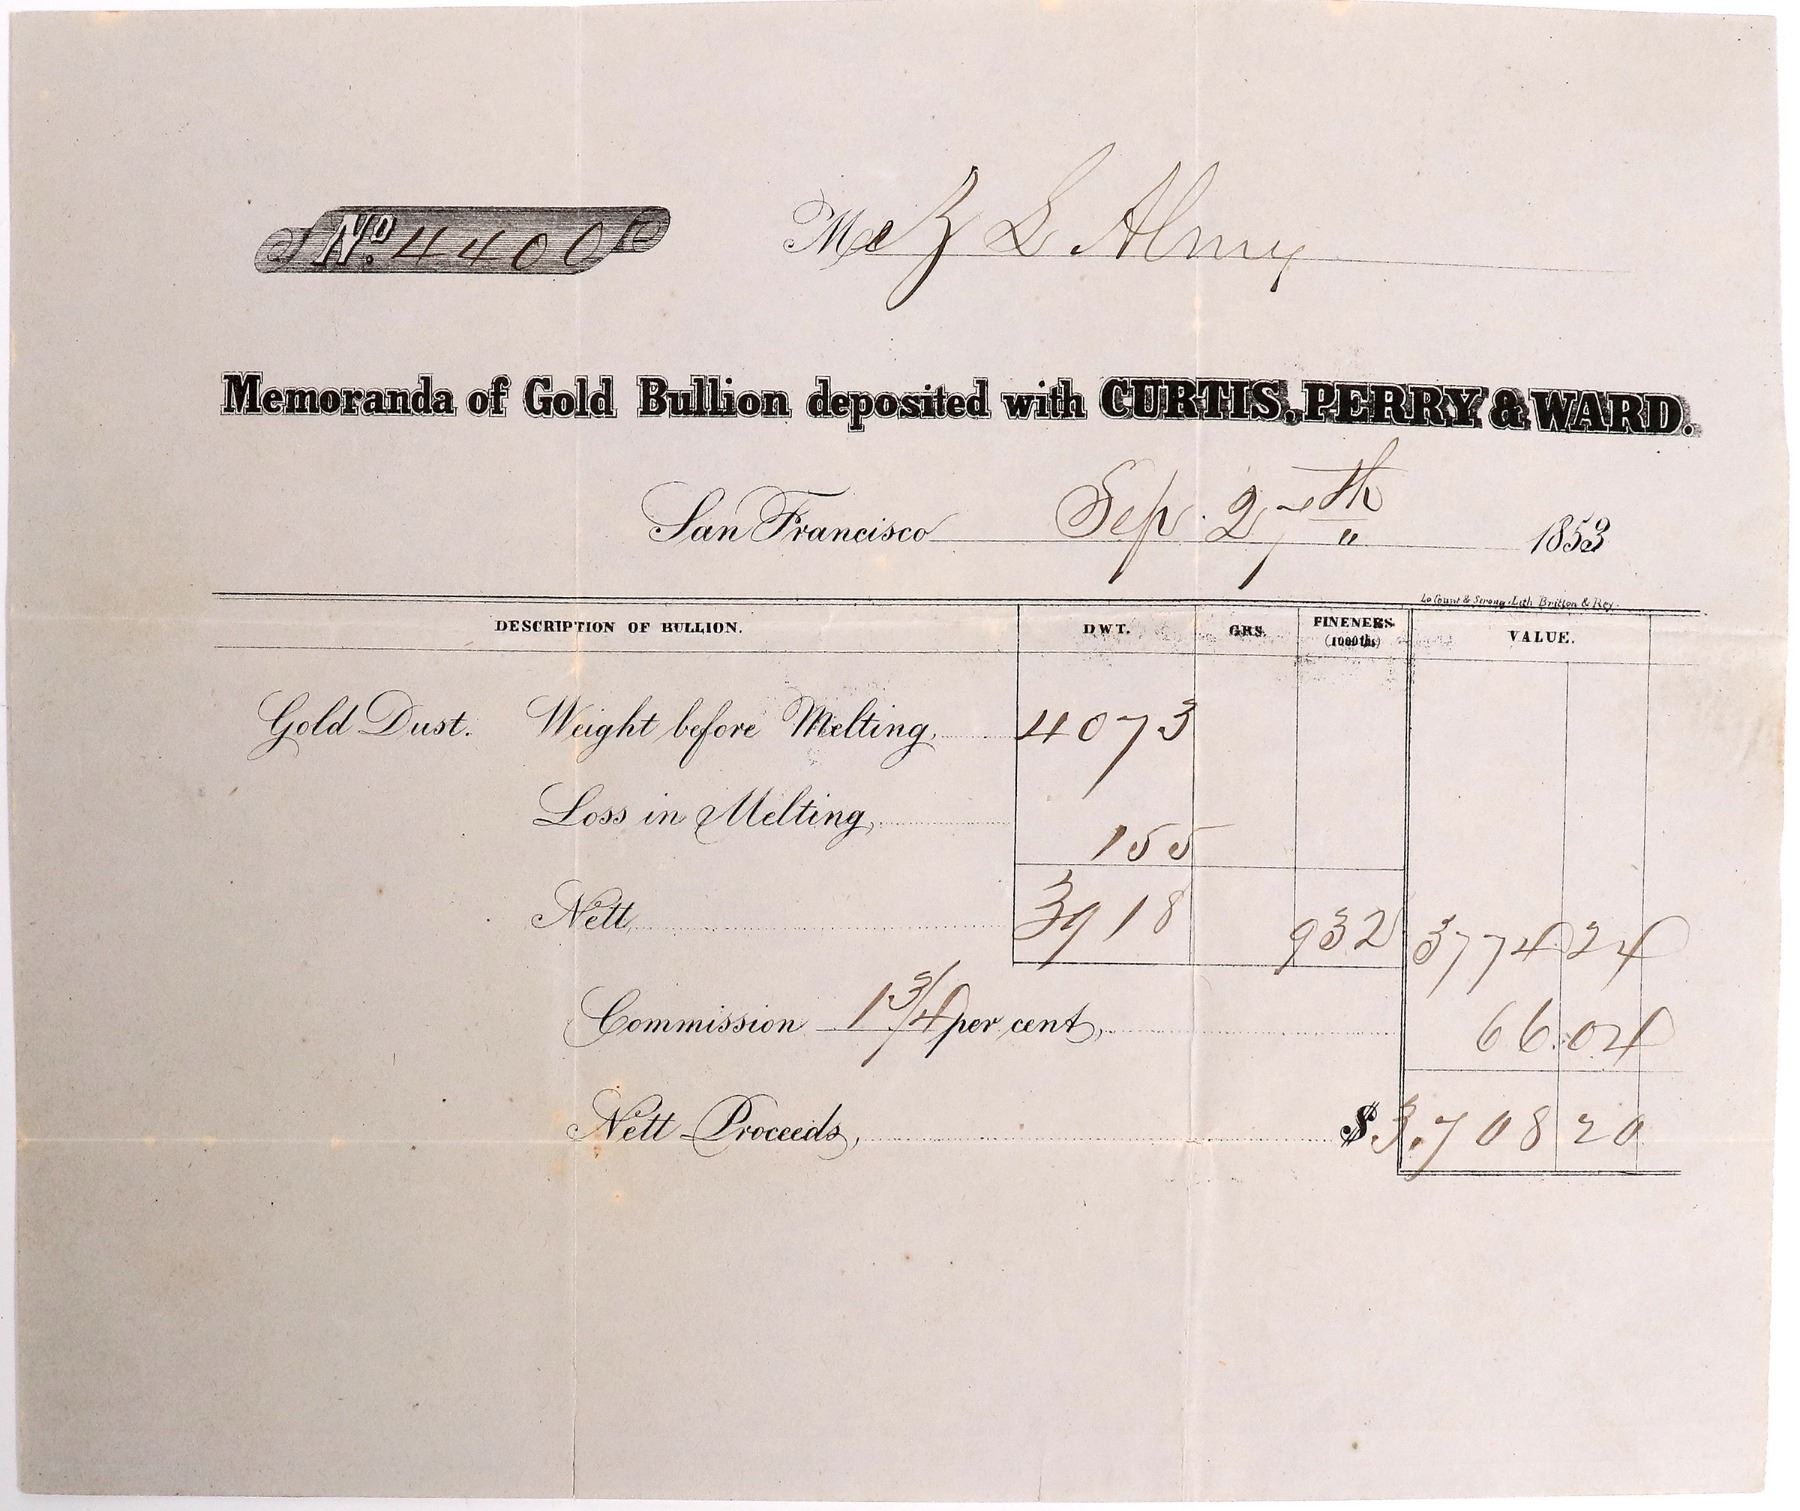 No. 4400
M Z L Almy
Memoranda of Gold Bullion deposited with CURTIS, PERRY & WARD.
San Francisco Sep. 27th 1853
Le Count & Strong. Lith Britton & Rey.
DESCRIPTION OF BULLION. DWT. GRS. FINENERS (1000ths) VALUE.
Gold Dust. Weight before Melting, 4073
Loss in Melting, 155
Nett, 3918 932 3774 24
Commission 1 3/4 per cent, 66.04
Nett Proceeds, $3.708 20